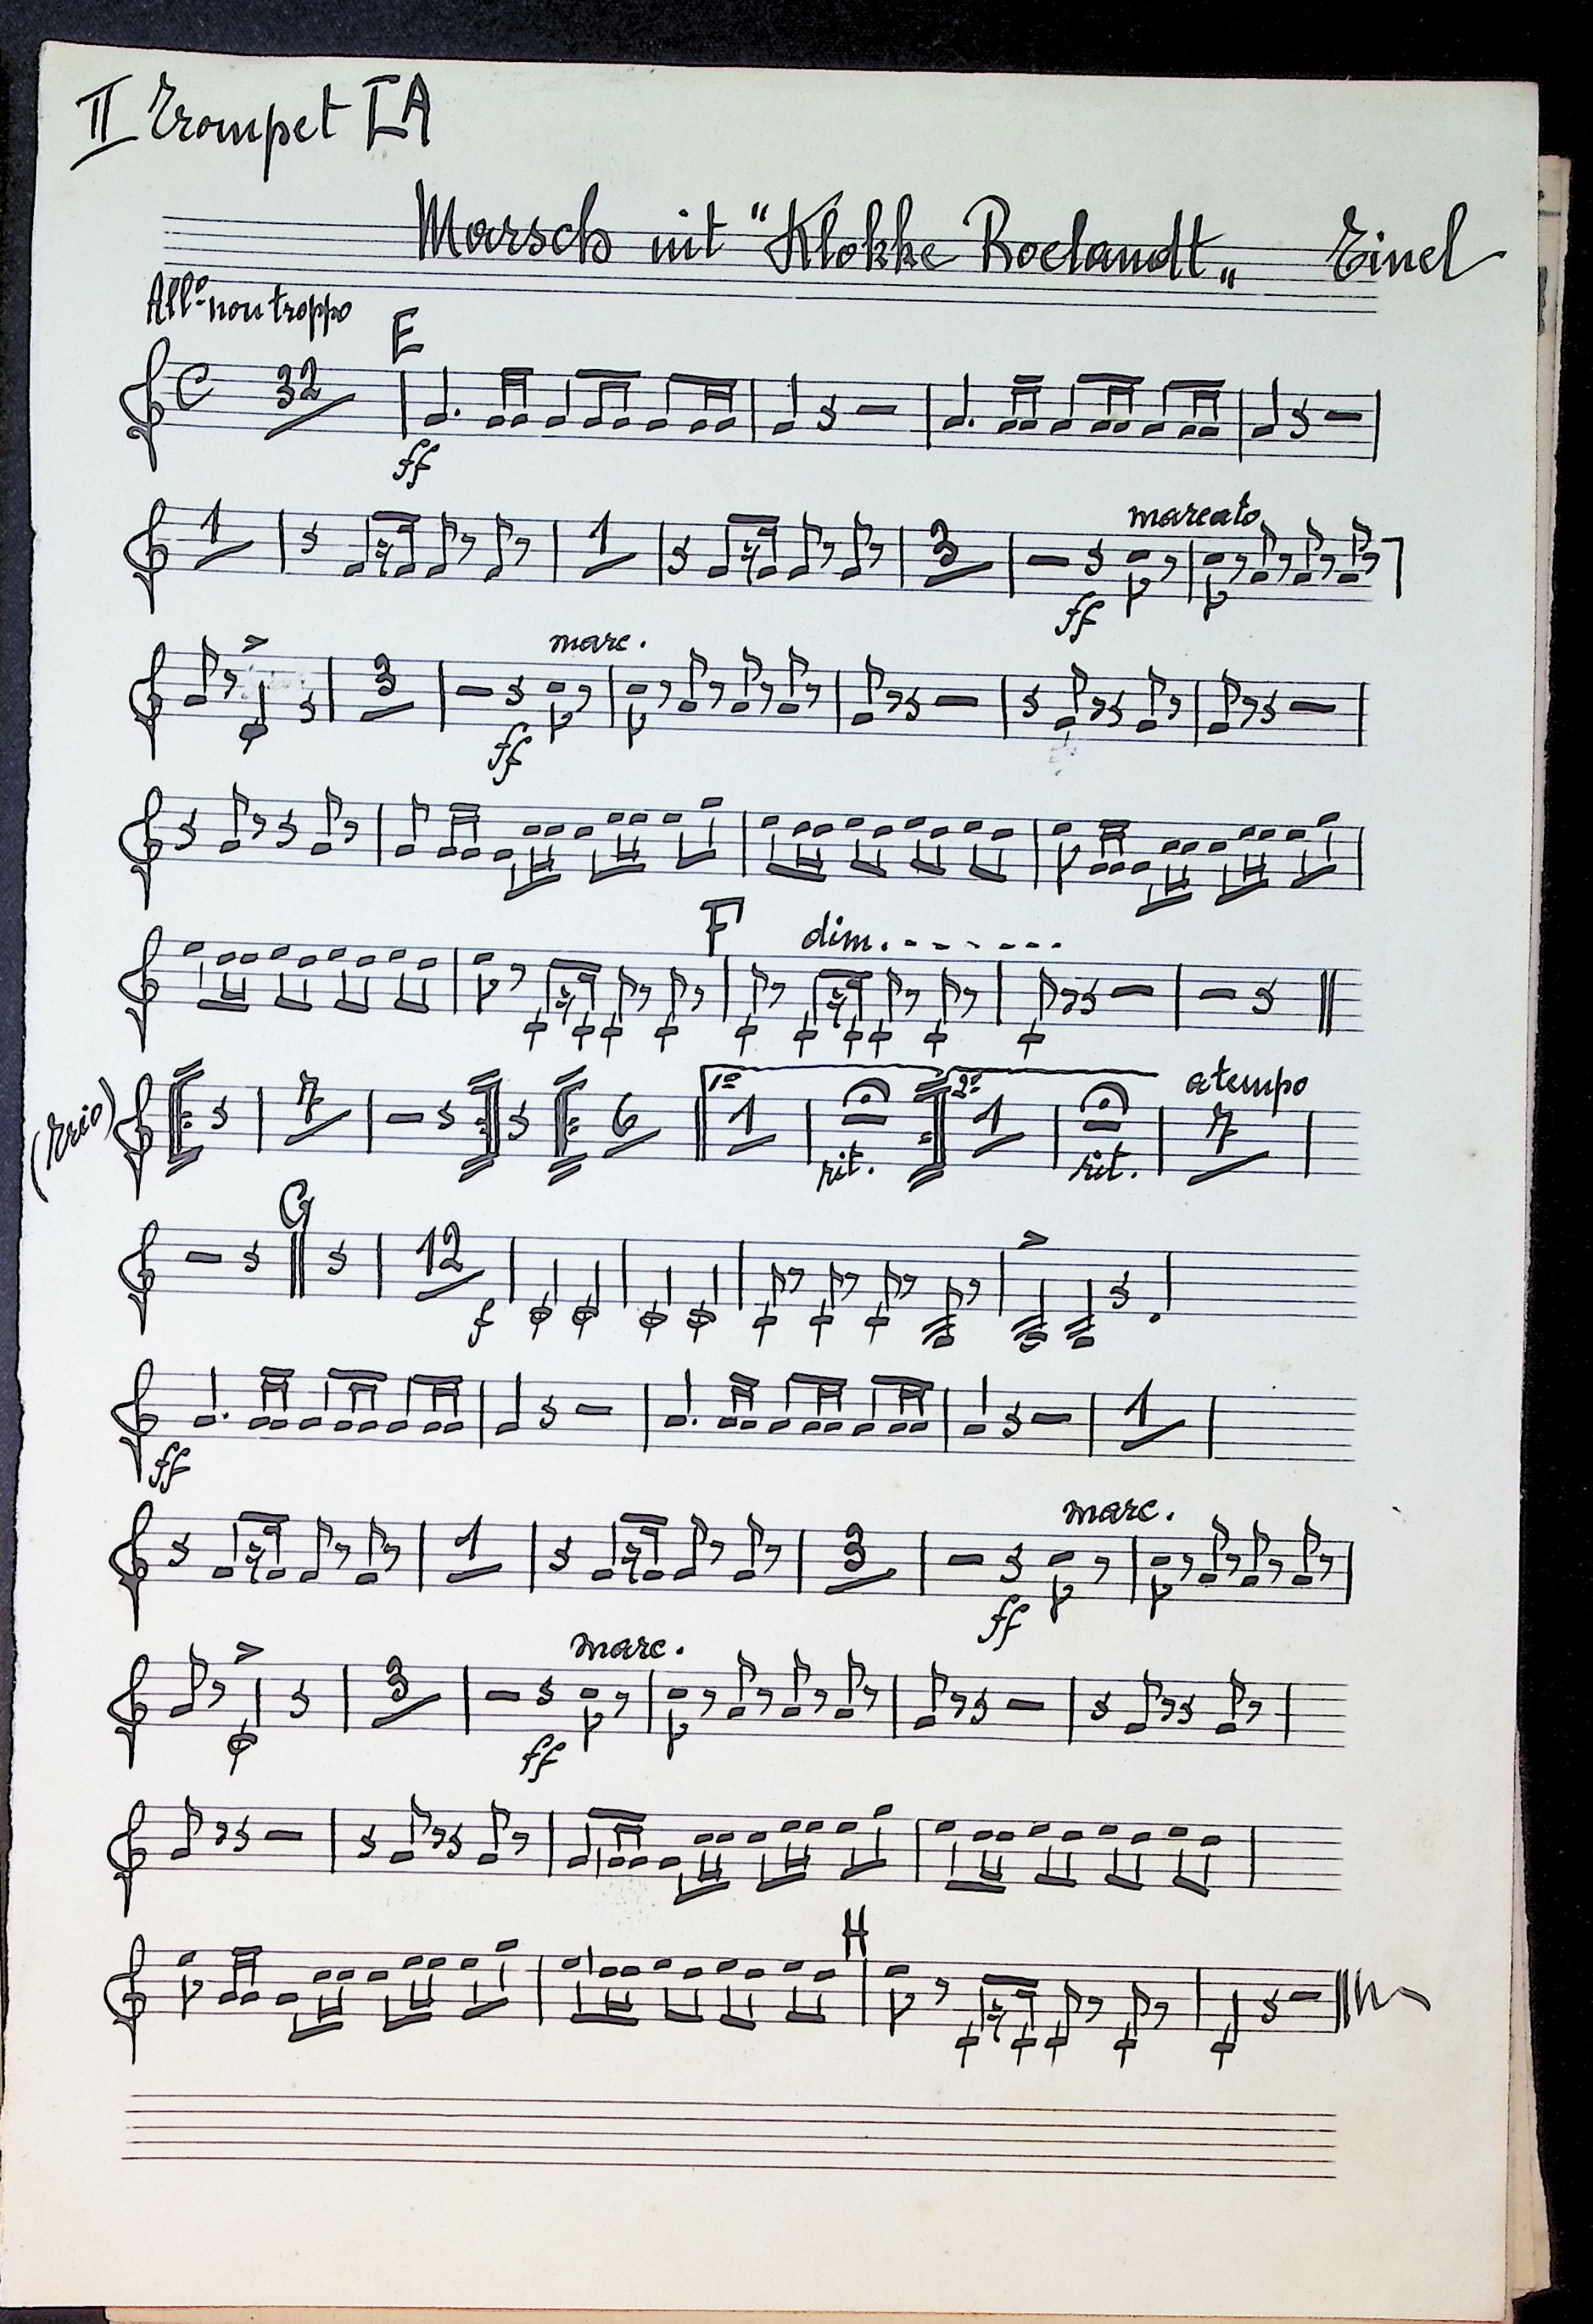 II Trompet LA
Marsch uit "Klokke Roelandt„ Tinel
All° non troppo
32 E
ff
1 1 3 marcato
ff
3 marc.
ff
F dim.
(Trio) 7 6 1° 1 2° 1 a tempo 7
rit. rit.
G
12
f
1
ff
1 3 marc.
ff
3 marc.
ff
H